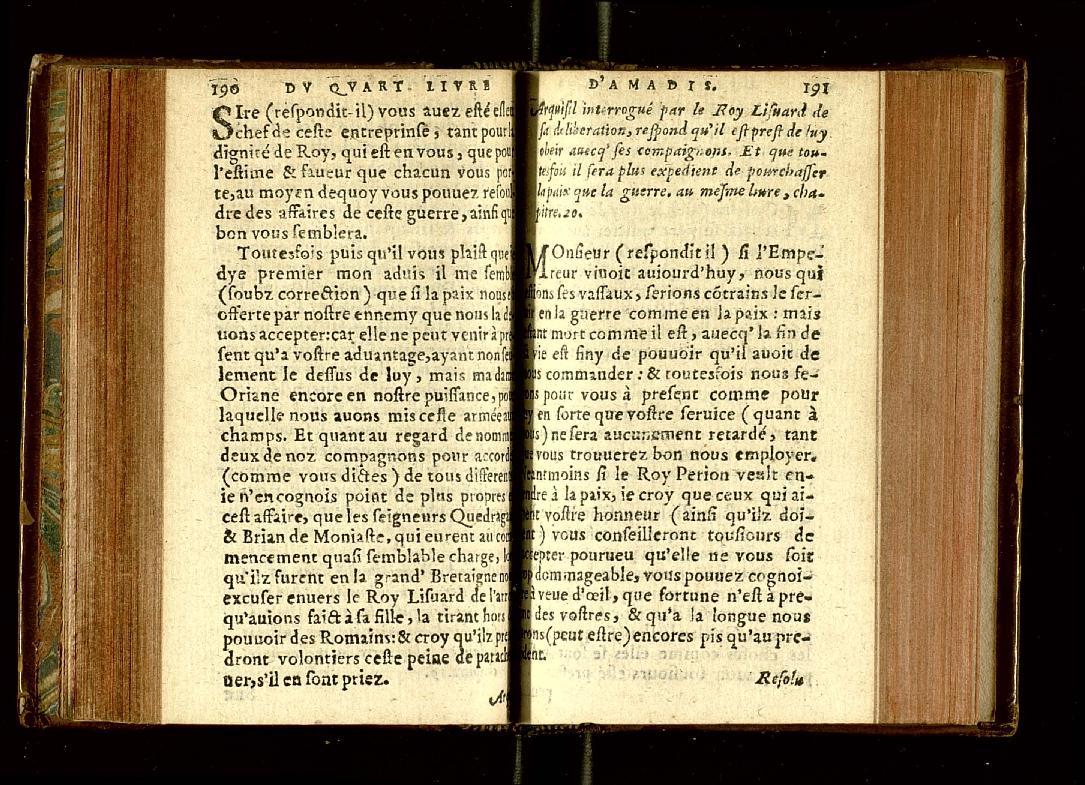 190 DV QVART LIVRE
SIre (respondit-il) vous auez esté
chef de ceste entreprinse, tant pour
dignité de Roy, qui est en vous, que
l'estime & faueur que chacun vous
te, au moyen dequoy vous pouuez
dre des affaires de ceste guerre, ainsi
bon vous semblera.
Toutesfois puis qu'il vous plaist que
dye premier mon aduis il me
(soubz correction) que si la paix
offerte par nostre ennemy que nous la
uons accepter: car elle ne peut venir à
sent qu'a vostre aduantage, ayant non
lement le dessus de luy, mais
Oriane encore en nostre puissance,
laquelle nous auons mis ceste armée
champs. Et quant au regard de
deux de noz compagnons pour
(comme vous dictes) de tous
ie n'en cognois point de plus propres
cest affaire, que les seigneurs
& Brian de Moniaste, qui eurent au
mencement quasi semblable charge,
qu'ilz furent en la grand' Bretaigne
excuser enuers le Roy Lisuard de
qu'auions faict à sa fille, la tirant hors
pouuoir des Romains: & croy qu'ilz
dront volontiers ceste peine de
uer, s'il en sont priez.
D'AMADIS. 191
Arquisil interrogué par le Roy Lisuard de
sa deliberation, respond qu'il est prest de luy
obeir auecq' ses compaignons. Et que tou-
tesfois il sera plus expedient de pourchasser
la paix que la guerre. au mesme liure, cha-
pitre. 20.
MOnsieur (respondit il) si l'Empe-
reur viuoit auiourd'huy, nous qui
ses vassaux, serions cōtrains le ser-
en la guerre comme en la paix: mais
mort comme il est, auecq' la fin de
vie est finy de pouuoir qu'il auoit de
commander: & toutesfois nous fe-
pour vous à present comme pour
en sorte que vostre seruice (quant à
) ne sera aucunement retardé, tant
vous trouuerez bon nous employer.
si le Roy Perion veult en-
à la paix, ie croy que ceux qui ai-
vostre honneur (ainsi qu'ilz doi-
) vous conseilleront tousiours de
pourueu qu'elle ne vous soit
dommageable, vous pouuez cognoi-
à veue d'œil, que fortune n'est à pre-
des vostres, & qu'a la longue nous
(peut estre) encores pis qu'au pre-
Resolu